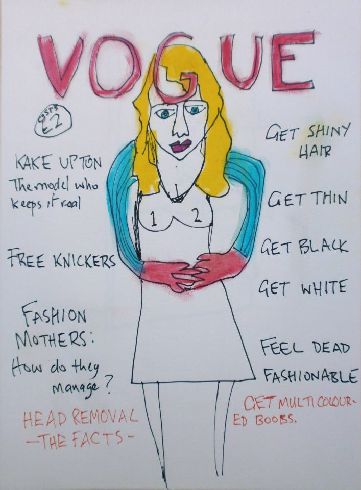 VOGUE
£2
KAKE UPTON
The model who
keeps it real
FREE KNICKERS
FASHION
MOTHERS:
How do they
manage?
HEAD REMOVAL
-THE FACTS-
1 2
GET SHINY
HAIR
GET THIN
GET BLACK
GET WHITE
FEEL DEAD
FASHIONABLE
GET MULTICOLOUR-
ED BOOBS.